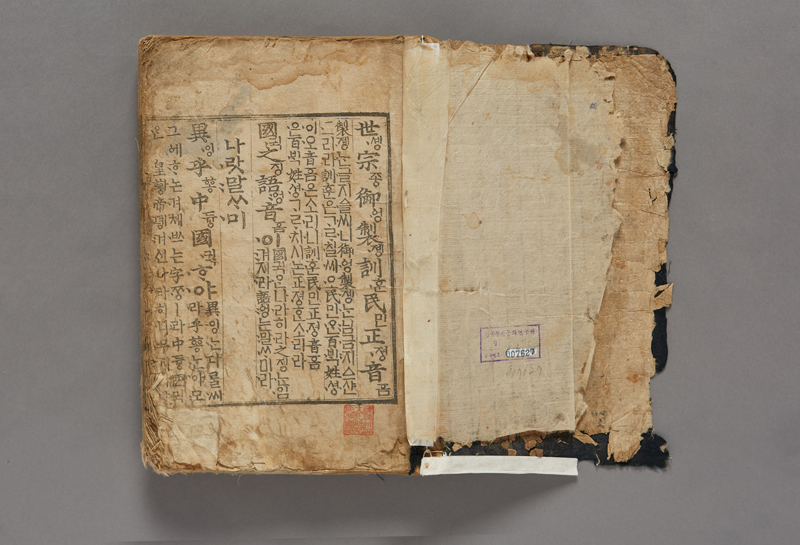 世솅宗종御엉製졩訓훈民민正졍音ᅙᅳᆷ
製졩ᄂᆞᆫ글지ᅀᅳᆯ씨니御ᅌᅥᆼ製졩ᄂᆞᆫ님금지ᅀᅳ샨
그리라訓훈은ᄀᆞᄅᆞ칠씨오民민ᄋᆞᆫ百ᄇᆡᆨ姓셩
이오音ᅙᅳᆷ은소리니訓훈民민正졍音ᅙᅳᆷ
은百ᄇᆡᆨ姓셩ᄀᆞᄅᆞ치시논正졍ᄒᆞᆫ소리라
國귁之징語ᅌᅥᆼ音ᅙᅳᆷ이 國귁ᄋᆞᆫ나라히라之징ᄂᆞᆫ입
겨지라語ᅌᅥᆼ는말ᄊᆞ미라
나랏말ᄊᆞ미
異잉乎ᅘᅩᆼ中듀ᇰ國귁ᄒᆞ야 異잉ᄂᆞᆫ다ᄅᆞᆯ씨
라乎ᅘᅩᆼᄂᆞᆫ아모
그ᅌᅦᄒᆞ논겨체ᄡᅳ는字ᄍᆞᆼㅣ라中듀ᇰ國귁
ᄋᆞᆫ皇ᅘᅪᇰ帝뎽겨신나라히니
007627